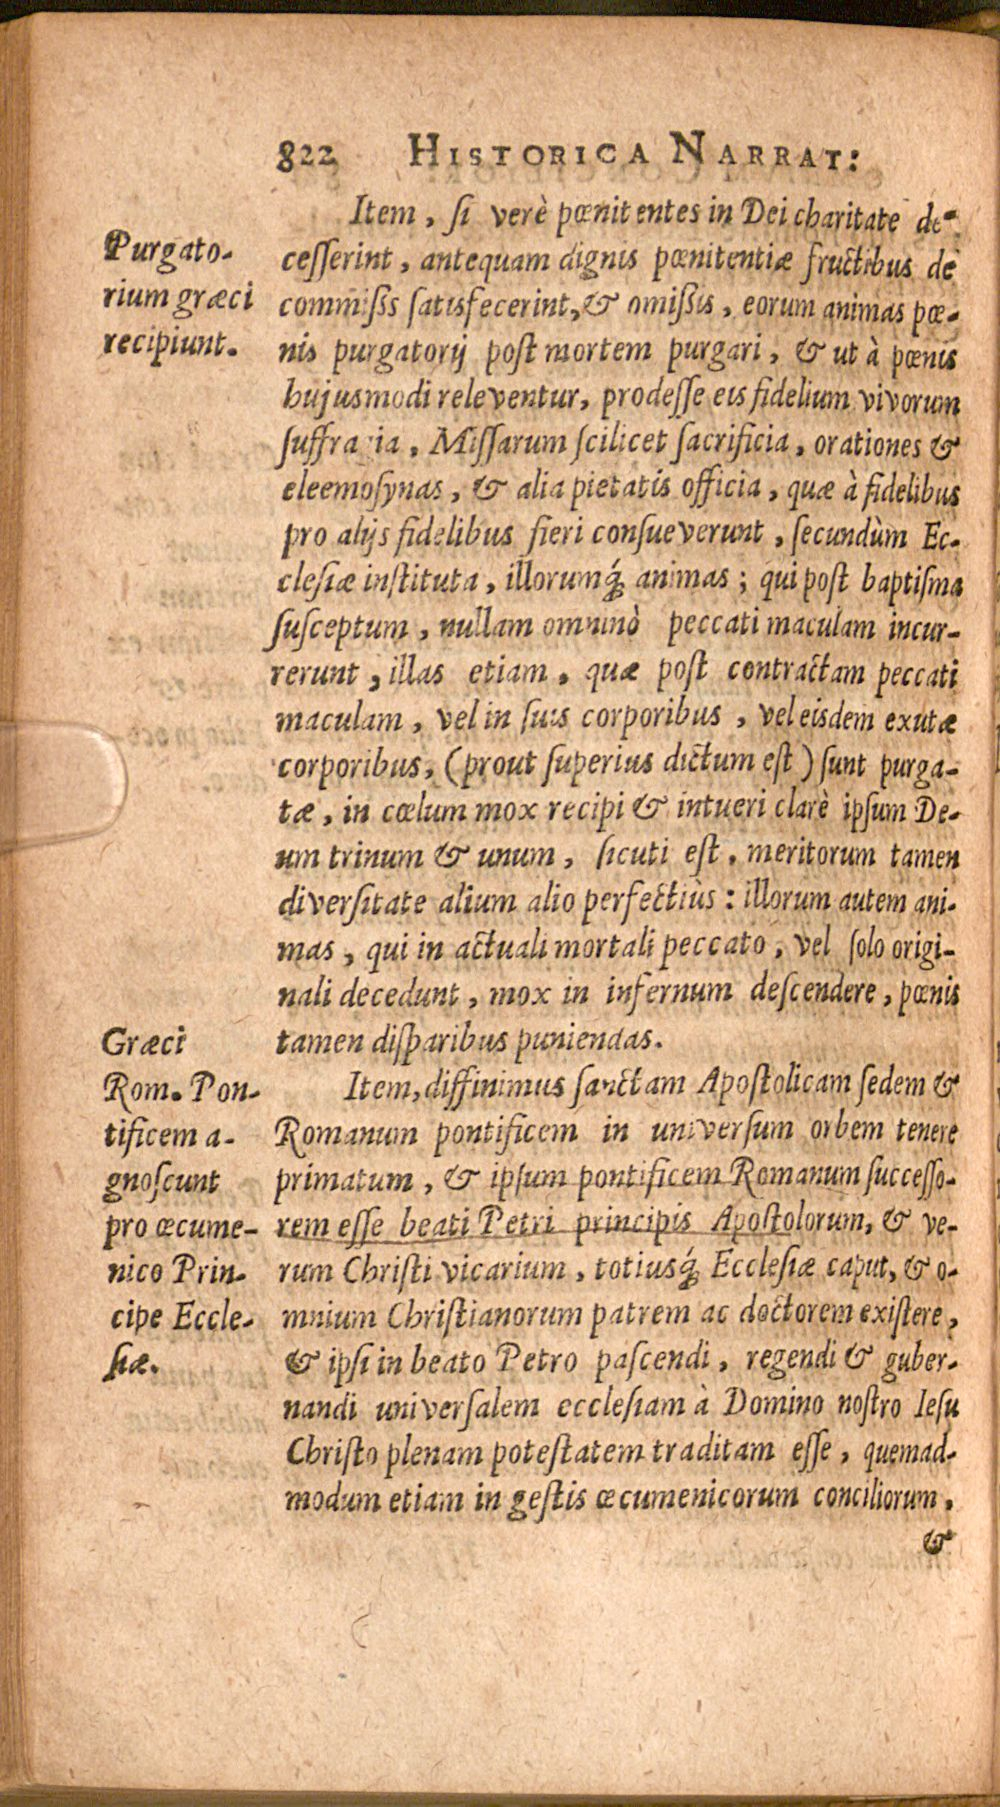 822 HISTORICA NARRAT:
Item, ſi verè pœnitentes in Dei charitate de-
ceſſerint, antequam dignis pœnitentiæ fructibus de
commiſsis ſatisfecerint, & omiſsis, eorum animas pœ-
nis purgatorij poſt mortem purgari, & ut à pœnis
hujusmodi releventur, prodeſſe eis fidelium vivorum
ſuffragia, Miſſarum ſcilicet ſacrificia, orationes &
eleemoſynas, & alia pietatis officia, quæ à fidelibus
pro alijs fidelibus fieri conſueverunt, ſecundùm Ec-
cleſiæ inſtituta, illorumq́; animas; qui poſt baptiſma
ſuſceptum, nullam omninò peccati maculam incur-
rerunt, illas etiam, quæ poſt contractam peccati
maculam, vel in ſuis corporibus, vel eisdem exutæ
corporibus, (prout ſuperius dictum eſt) ſunt purga-
tæ, in cœlum mox recipi & intueri clarè ipſum De-
um trinum & unum, ſicuti eſt, meritorum tamen
diverſitate alium alio perfectiùs: illorum autem ani-
mas, qui in actuali mortali peccato, vel ſolo origi-
nali decedunt, mox in infernum deſcendere, pœnis
tamen diſparibus puniendas.
Item, diffinimus ſanctam Apoſtolicam ſedem &
Romanum pontificem in univerſum orbem tenere
primatum, & ipſum pontificem Romanum ſucceſſo-
rem eſſe beati Petri principis Apoſtolorum, & ve-
rum Chriſti vicarium, totiusq́; Eccleſiæ caput, & o-
mnium Chriſtianorum patrem ac doctorem exiſtere,
& ipſi in beato Petro paſcendi, regendi & guber-
nandi univerſalem eccleſiam à Domino noſtro Ieſu
Chriſto plenam poteſtatem traditam eſſe, quemad-
modum etiam in geſtis œcumenicorum conciliorum,
&
Purgato-
rium græci
recipiunt.
Græci
Rom. Pon-
tificem a-
gnoſcunt
pro œcume-
nico Prin-
cipe Eccle-
ſiæ.